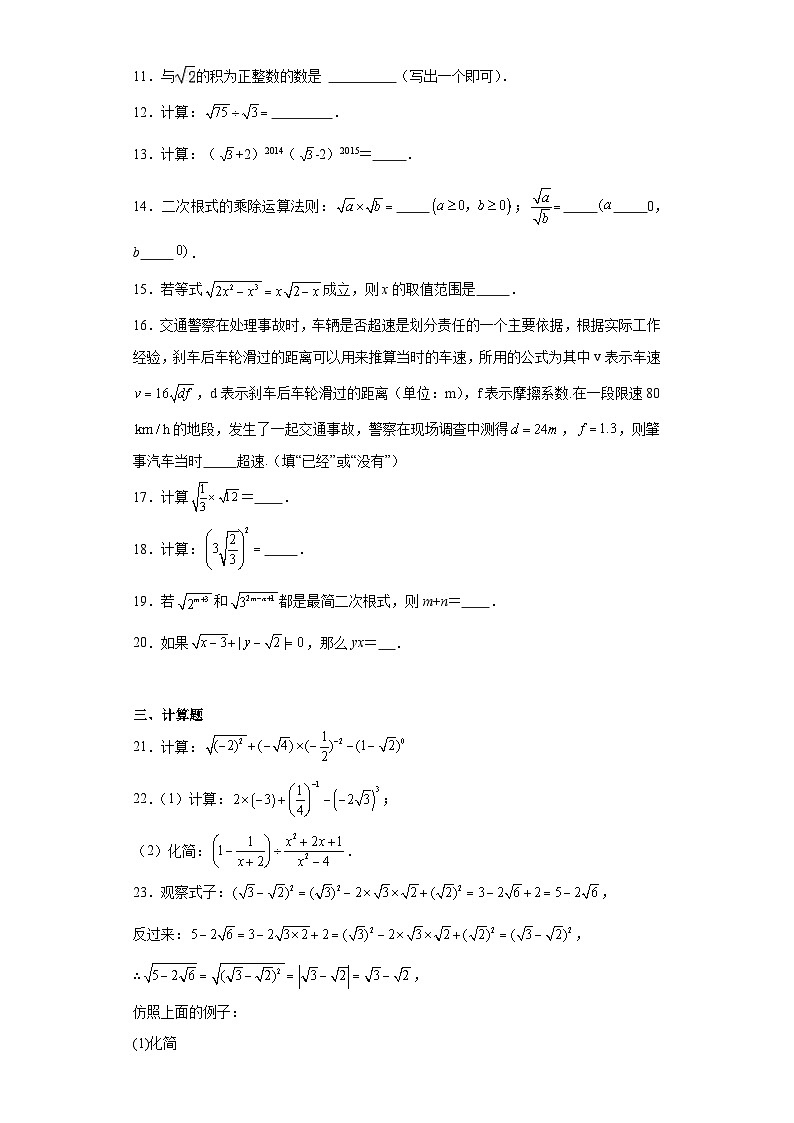 11．与√2的积为正整数的数是 ________（写出一个即可）．
12．计算：√75÷√3=________．
13．计算：（√3+2）²⁰¹⁴（√3-2）²⁰¹⁵＝_____．
14．二次根式的乘除运算法则：√a×√b=_____(a≥0，b≥0)；√a/√b=_____(a_____0，
b_____0)．
15．若等式√(2x²−x³)=x√(2−x)成立，则x的取值范围是_____．
16．交通警察在处理事故时，车辆是否超速是划分责任的一个主要依据，根据实际工作
经验，刹车后车轮滑过的距离可以用来推算当时的车速，所用的公式为其中v表示车速
v=16√(df)，d表示刹车后车轮滑过的距离（单位：m），f表示摩擦系数.在一段限速80
km/h的地段，发生了一起交通事故，警察在现场调查中测得d=24m，f=1.3，则肇
事汽车当时_____超速.（填“已经”或“没有”）
17．计算√(1/3)×√12＝____．
18．计算：(3√(2/3))²=_____．
19．若√(2^(m+3))和√(3^(2m−n+1))都是最简二次根式，则m+n＝____．
20．如果√(x−3)+|y−√2|=0，那么yx＝__．
三、计算题
21．计算：√((−2)²)+(−√4)×(−1/2)⁻²−(1−√2)⁰
22．（1）计算：2×(−3)+(1/4)⁻¹−(−2√3)³；
（2）化简：(1−1/(x+2))÷(x²+2x+1)/(x²−4)．
23．观察式子：(√3−√2)²=(√3)²−2×√3×√2+(√2)²=3−2√6+2=5−2√6，
反过来：5−2√6=3−2√(3×2)+2=(√3)²−2×√3×√2+(√2)²=(√3−√2)²，
∴√(5−2√6)=√((√3−√2)²)=|√3−√2|=√3−√2，
仿照上面的例子：
(1)化简